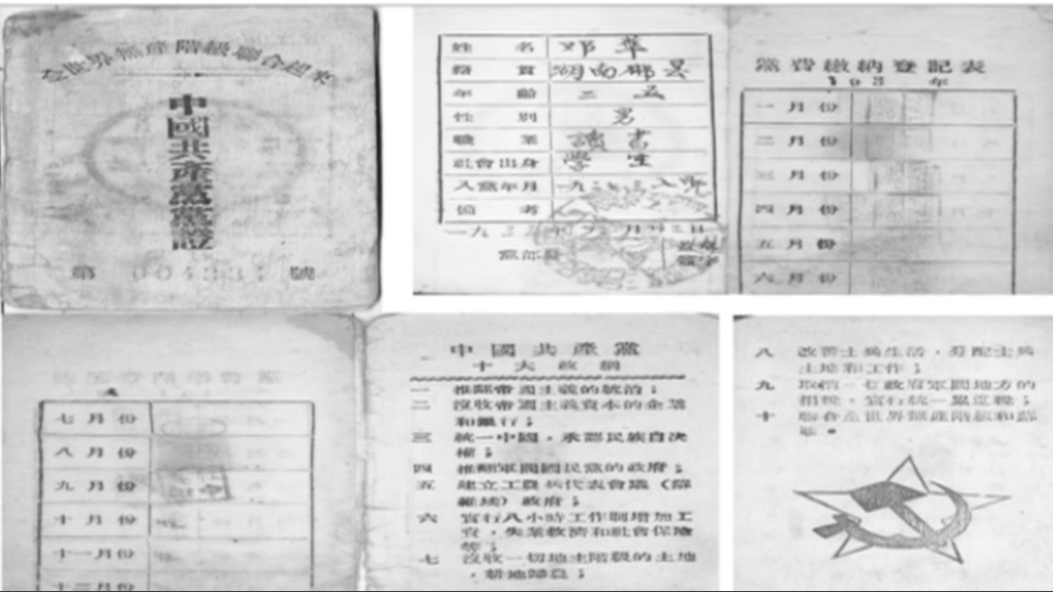 全世界無產階級聯合起來
中國共產黨黨證
第 號
姓 名 鄧萍
籍 貫 湖南
年 齡 二五
性 別 男
職 業 讀書
社會出身 學生
入黨年月 一九
備 考
一九三
黨費繳納登記表
193 年
一月份
二月份
三月份
四月份
五月份
六月份
七月份
八月份
九月份
十月份
十一月份
十二月份
中國共產黨
十大政綱
一 推翻帝國主義的統治；
二 沒收帝國主義資本的企業
和銀行；
三 統一中國，承認民族自決
權；
四 推翻軍閥國民黨的政府；
五 建立工農兵代表會議（蘇
維埃）政府；
六 實行八小時工作制增加工
資，失業救濟和社會保險
等；
七 沒收一切地主階級的土地
，耕地歸農；
八 改善士兵生活，分配士兵
土地和工作；
九 取消一切政府軍閥地方的
捐稅，實行統一累進稅；
十 聯合全世界無產階級和蘇
聯。